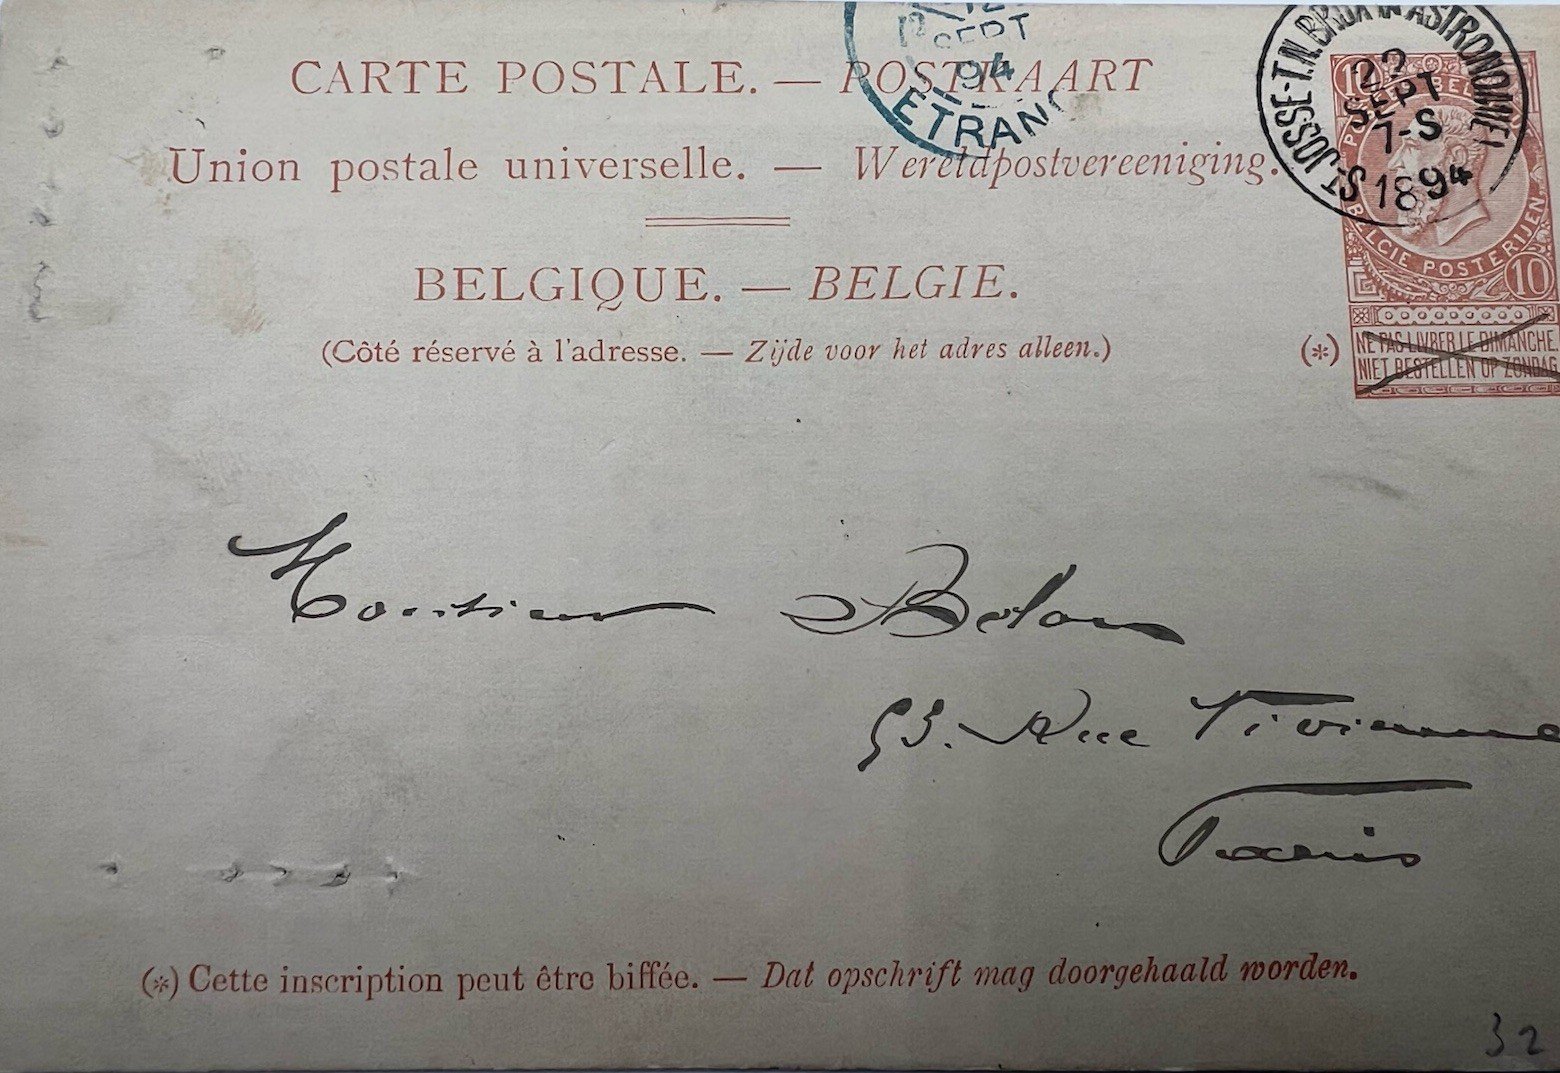 CARTE POSTALE. — POSTKAART
Union postale universelle. — Wereldpostvereeniging.
BELGIQUE. — BELGIE.
(Côté réservé à l'adresse. — Zijde voor het adres alleen.)
SEPT
94
ETRANG
ST-JOSSE-T.N. BRUX
22
SEPT
7-S
1894
10
BELGIE POSTERIJEN
10
(*)
NE PAS LIVRER LE DIMANCHE.
NIET BESTELLEN OP ZONDAG
Monsieur
53. Rue Vivienne
Paris
(*) Cette inscription peut être biffée. — Dat opschrift mag doorgehaald worden.
32